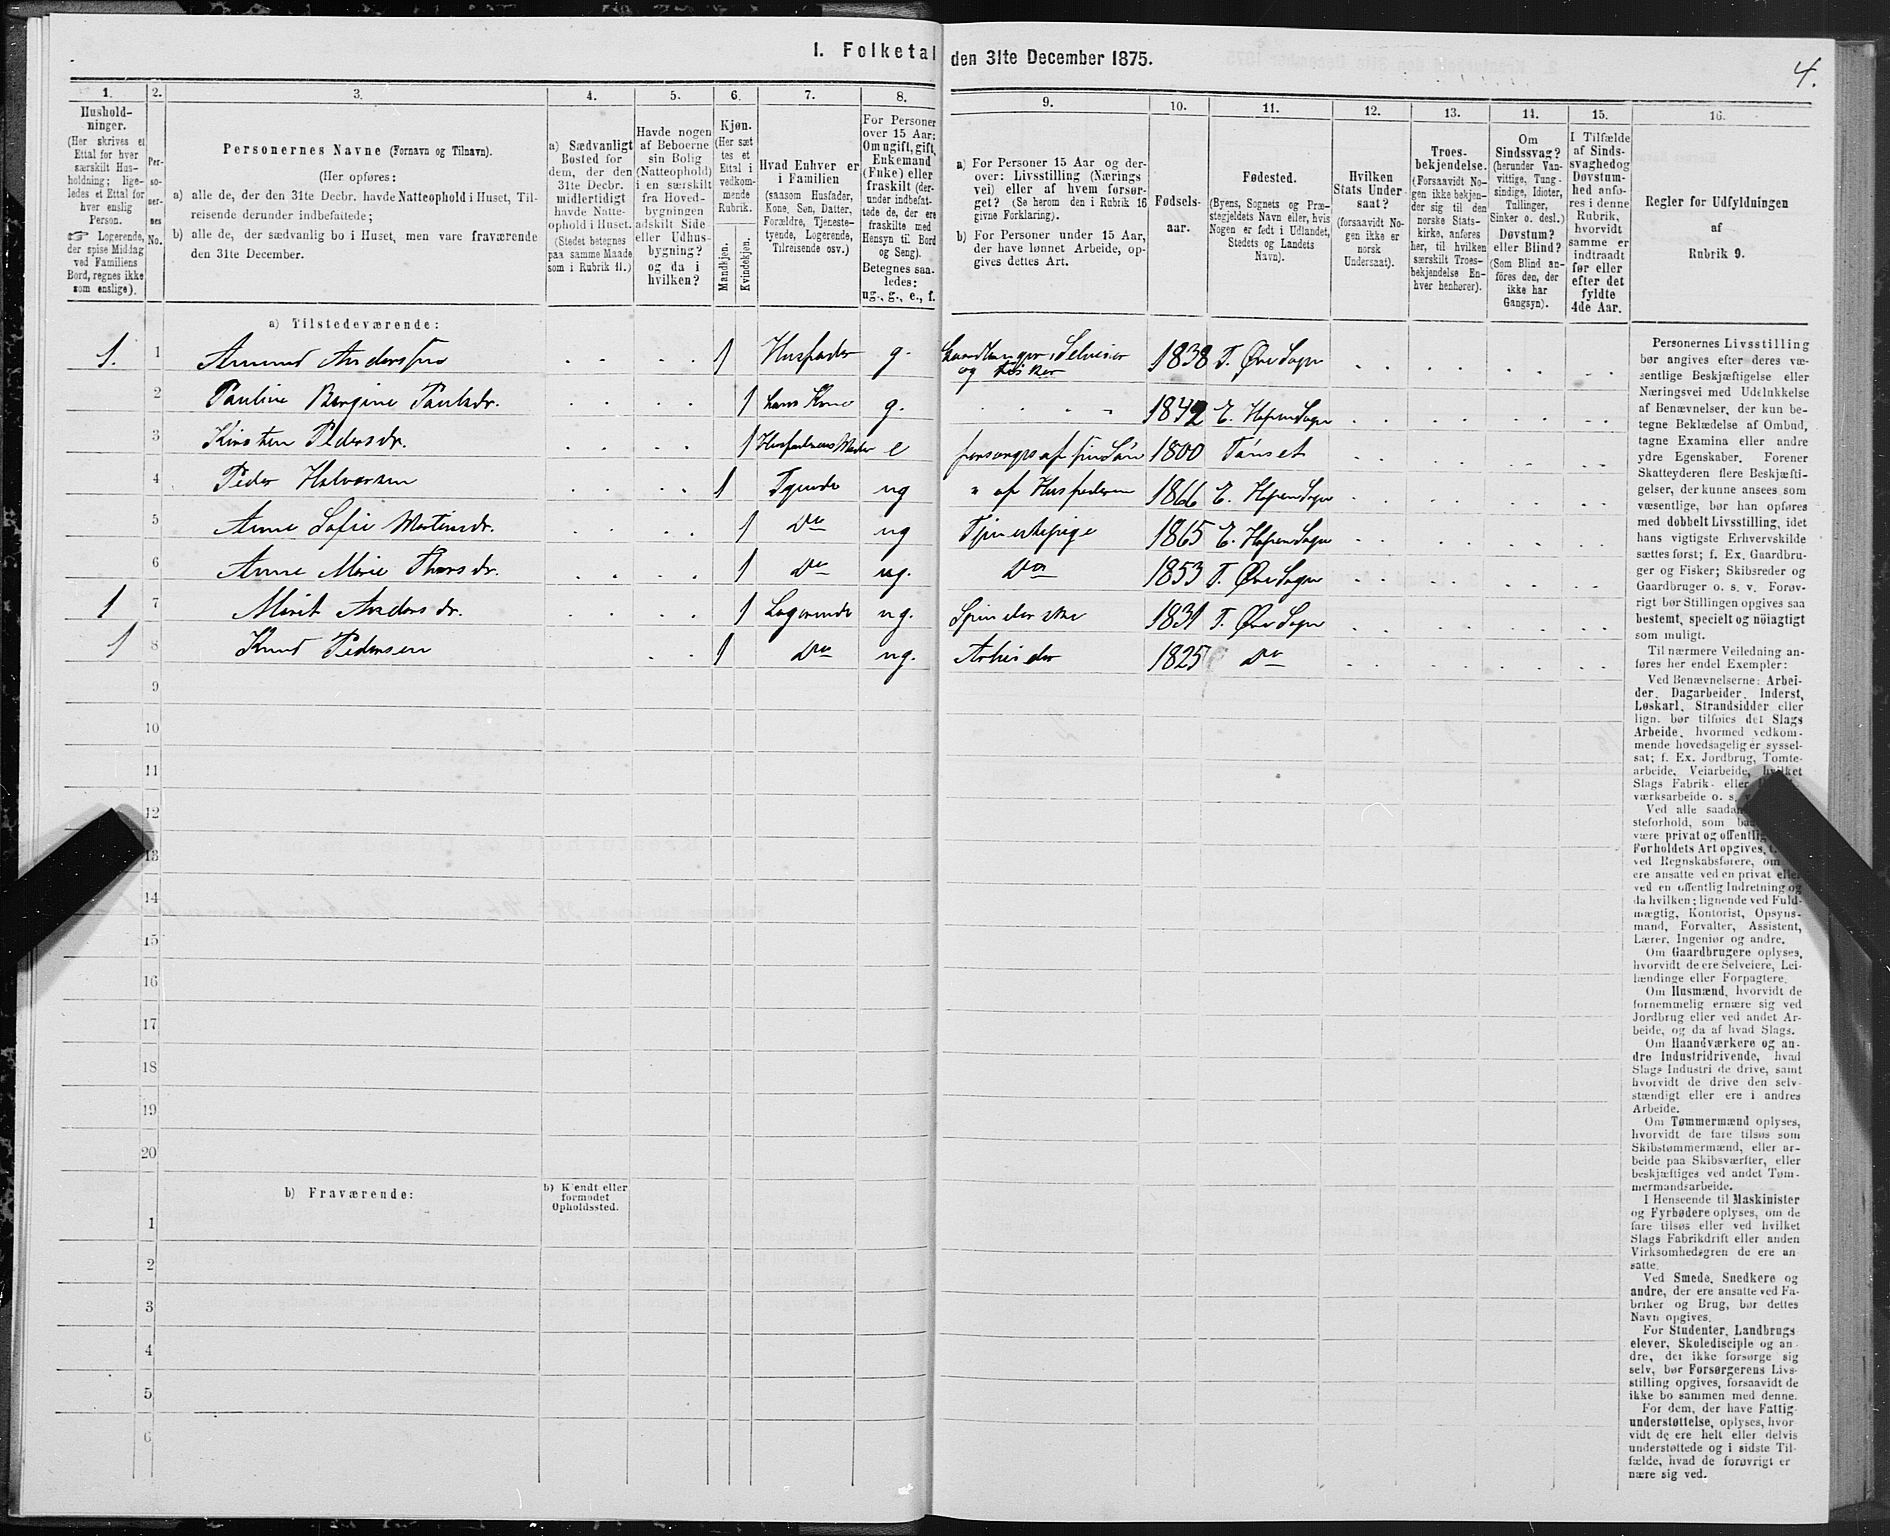 I. Folketal den 31te December 1875.
4.
1. 2. 3. 4. 5. 6. 7. 8. 9. 10. 11. 12. 13. 14. 15. 16.
Hushold-
ninger.
(Her skrives et
Ettal for hver
særskilt Hus-
holdning; lige-
ledes et Ettal for
hver enslig
Person.
☞ Logerende,
der spise Middag
ved Familiens
Bord, regnes ikke
som enslige).
Per-
so-
ner-
nes
No.
Personernes Navne (Fornavn og Tilnavn).
(Her opføres:
a) alle de, der den 31te Decbr. havde Natteophold i Huset, Til-
reisende derunder indbefattede;
b) alle de, der sædvanlig bo i Huset, men vare fraværende
den 31te December.
a) Sædvanligt
Bosted for
dem, der den
31te Decbr.
midlertidigt
havde Natte-
ophold i Huset.
(Stedet betegnes
paa samme Maade
som i Rubrik 11.)
Havde nogen
af Beboerne
sin Bolig
(Natteophold)
i en særskilt
fra Hoved-
bygningen
adskilt Side
eller Udhus-
bygning?
og da i
hvilken?
Kjøn.
(Her sæt
tes et
Ettal i
vedkom-
mende
Rubrik.
Mandkjøn.
Kvindekjøn.
Hvad Enhver er
i Familien
(saasom Husfader,
Kone, Søn, Datter,
Forældre, Tjeneste-
tyende, Logerende,
Tilreisende osv.)
For Personer
over 15 Aar:
Om ugift, gift,
Enkemand
(Enke) eller
fraskilt (der-
under indbefat-
tede de, der ere
fraskilte med
Hensyn til Bord
og Seng).
Betegnes saa-
ledes:
ug., g., e., f.
a) For Personer 15 Aar og der-
over: Livsstilling (Nærings
vei) eller af hvem forsør-
get? (Se herom den i Rubrik 16
givne Forklaring).
b) For Personer under 15 Aar,
der have lønnet Arbeide, op-
gives dettes Art.
Fødsels-
aar.
Fødested.
(Byens, Sognets og Præ-
stegjeldets Navn eller, hvis
Nogen er født i Udlandet,
Stedets og Landets
Navn).
Hvilken
Stats Under-
saat?
(forsaavidt No-
gen ikke er
norsk
Undersaat).
Troes-
bekjendelse.
(Forsaavidt No-
gen ikke bekjen-
der sig til den
norske Stats-
kirke, anføres
her, til hvilken
særskilt Troes-
bekjendelse En-
hver henhører).
Om
Sindssvag?
(herunder Van-
vittige, Tung-
sindige, Idioter,
Tullinger,
Sinker o. desl.)
Døvstum?
eller Blind?
(Som Blind an-
føres den, der
ikke har
Gangsyn).
I Tilfælde
af Sinds-
svaghed og
Døvstum-
hed anfø-
res i denne
Rubrik,
hvorvidt
samme er
indtraadt
før eller
efter det
fyldte
4de Aar.
Regler for Udfyldningen
af
Rubrik 9.
a) Tilstedeværende:
1. 1 Amund Anderssen 1 Husfader g. Gaardbruger, Selveier og Fisker 1838 T. Øre Sogn
2 Pauline Bergine Paulsdr. 1 hans Kone g. 1842 E. Hopens Sogn
3 Kirsten Pedersdr. 1 Husfaderens Moder e forsørges af sin Søn 1800 Tønset
4 Peder Halvorsen 1 Tyende ug " af Husfaderen 1866 E. Hopens Sogn
5 Anne Sofie Mortensdr. 1 Do ug Tjenestepige 1865 E. Hopens Sogn
6 Anne Marie Thorsdr. 1 Do ug. Do 1853 T. Øre Sogn
1 7 Marit Andersdr. 1 Logerende ug. Spinderske 1831 T. Øre Sogn
1 8 Knud Pedersen 1 Do ug. Arbeider 1825 Do
9
10
11
12
13
14
15
16
17
18
19
20
b) Fraværende:
b) Kjendt eller
formodet
Opholdssted.
1
2
3
4
5
6
Personernes Livsstilling
bør angives efter deres væ-
sentlige Beskjæftigelse eller
Næringsvei med Udelukkelse
af Benævnelser, der kun be-
tegne Beklædelse af Ombud,
tagne Examina eller andre
ydre Egenskaber. Forener
Skatteyderen flere Beskjæfti-
gelser, der kunne ansees som
væsentlige, bør han opføres
med dobbelt Livsstilling, idet
hans vigtigste Erhvervskilde
sættes først; f. Ex. Gaardbru-
ger og Fisker; Skibsreder og
Gaardbruger o. s. v. Forøv-
rigt bør Stillingen opgives saa
bestemt, specielt og nøiagtigt
som muligt.
Til nærmere Veiledning an-
føres her endel Exempler:
Ved Benævnelserne: Arbei-
der, Dagarbeider, Inderst,
Løskarl, Strandsidder eller
lign. bør tilføies det Slags
Arbeide, hvormed vedkom-
mende hovedsagelig er syssel-
sat; f. Ex. Jordbrug, Tomte-
arbeide, Veiarbeide, hvilket
Slags Fabrik- eller
værksarbeide o. s. v.
Ved alle saadan
steforhold, som
være privat og offentlig
Forholdets Art opgives,
ved Regnskabsførere, om
ere ansatte ved en privat eller
ved en offentlig Indretning og
da hvilken; lignende ved Fuld-
mægtig, Kontorist, Opsyns-
mand, Forvalter, Assistent,
Lærer, Ingeniør og andre.
Om Gaardbrugere oplyses,
hvorvidt de ere Selveiere, Lei-
lændinge eller Forpagtere.
Om Husmænd, hvorvidt de
fornemmelig ernære sig ved
Jordbrug eller ved andet Ar-
beide, og da af hvad Slags.
Om Haandværkere og an-
dre Industridrivende, hvad
Slags Industri de drive, samt
hvorvidt de drive den selv-
stændigt eller ere i andres
Arbeide.
Om Tømmermænd oplyses,
hvorvidt de fare tilsøs som
Skibstømmermænd, eller ar-
beide paa Skibsværfter, eller
beskjæftiges ved andet Tøm-
mermandsarbeide.
I Henseende til Maskinister
og Fyrbødere oplyses, om de
fare tilsøs eller ved hvilket
Slags Fabrikdrift eller anden
Virksomhedsgren de ere an-
satte.
Ved Smede, Snedkere og
andre, der ere ansatte ved Fa-
briker og Brug, bør dettes
Navn opgives.
For Studenter, Landbrugs
elever, Skoledisciple og an-
dre, der ikke forsørge sig
selv, bør Forsørgerens Livs-
stilling opgives, forsaavidt de
ikke bo sammen med denne.
For dem, der have Fattig-
understøttelse, oplyses, hvor-
vidt de ere helt eller delvis
understøttede og i sidste Til-
fælde, hvad de forøvrigt er
nære sig ved.